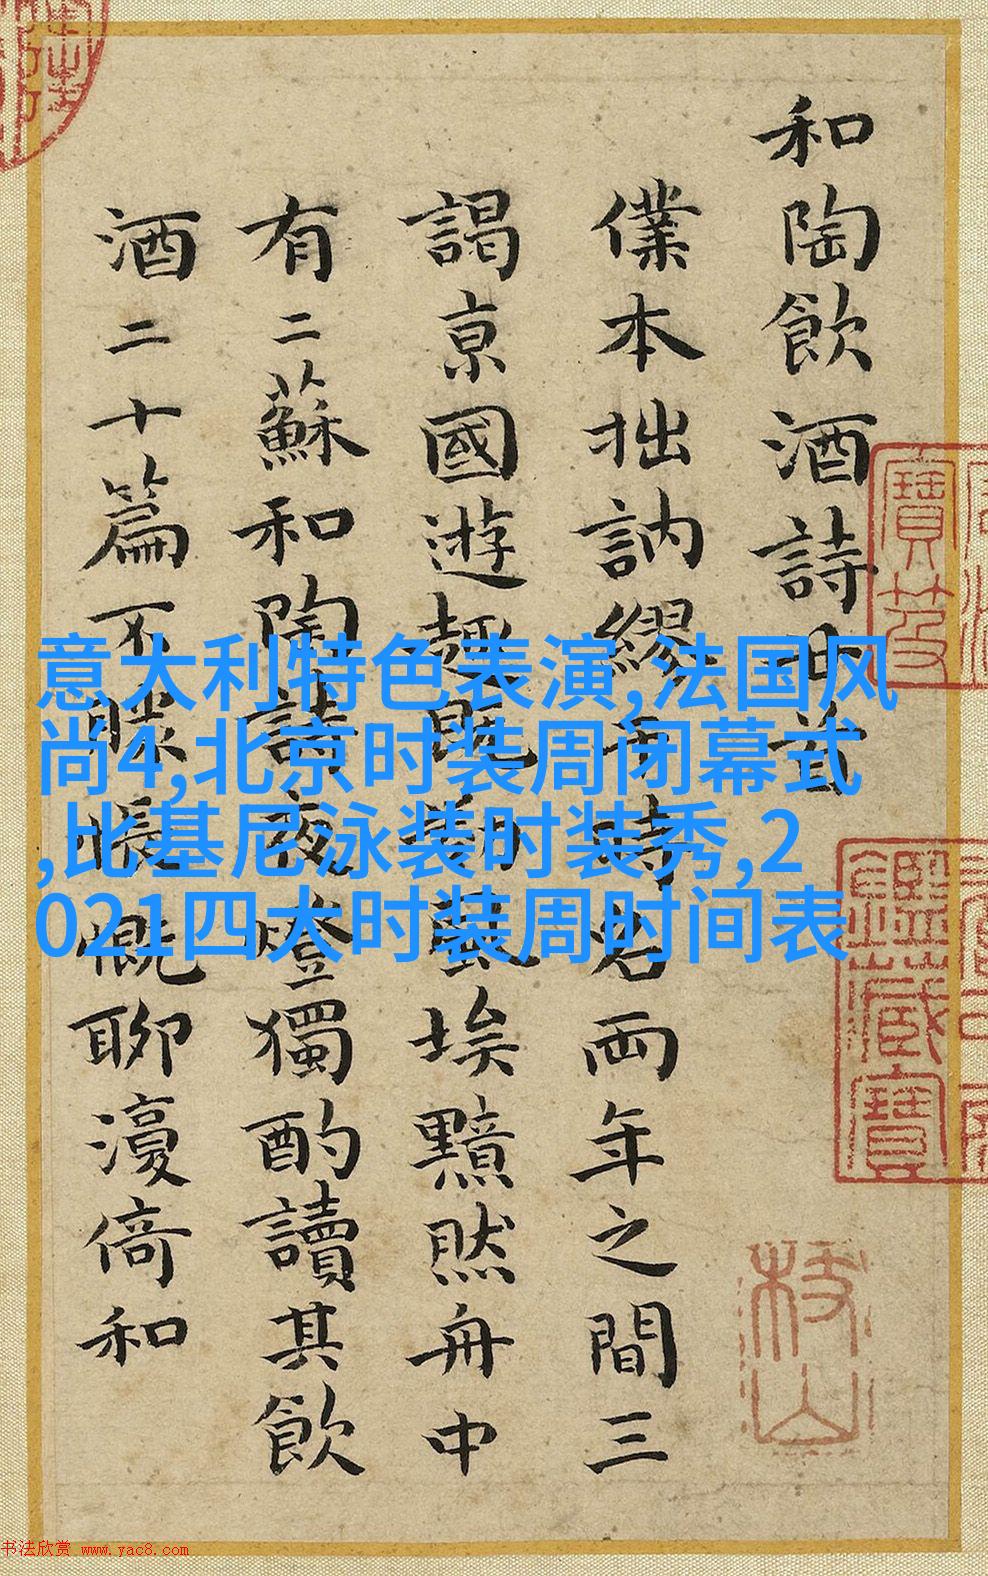 和陶飲酒詩廿首
僕本拙訥繆 時名兩年之間三
謁京國遊趣既 埃黯然舟中
有二蘇和陶詩夜燈獨酌讀其飲
酒二十篇不勝悵慨聊濅倚和
意大利特色表演,法国风
尚4,北京时装周闭幕式
,比基尼泳装时装秀,2
021四大时装周时间表
寶
鑑藏寶
枝山
书法欣赏 www.yac8.com